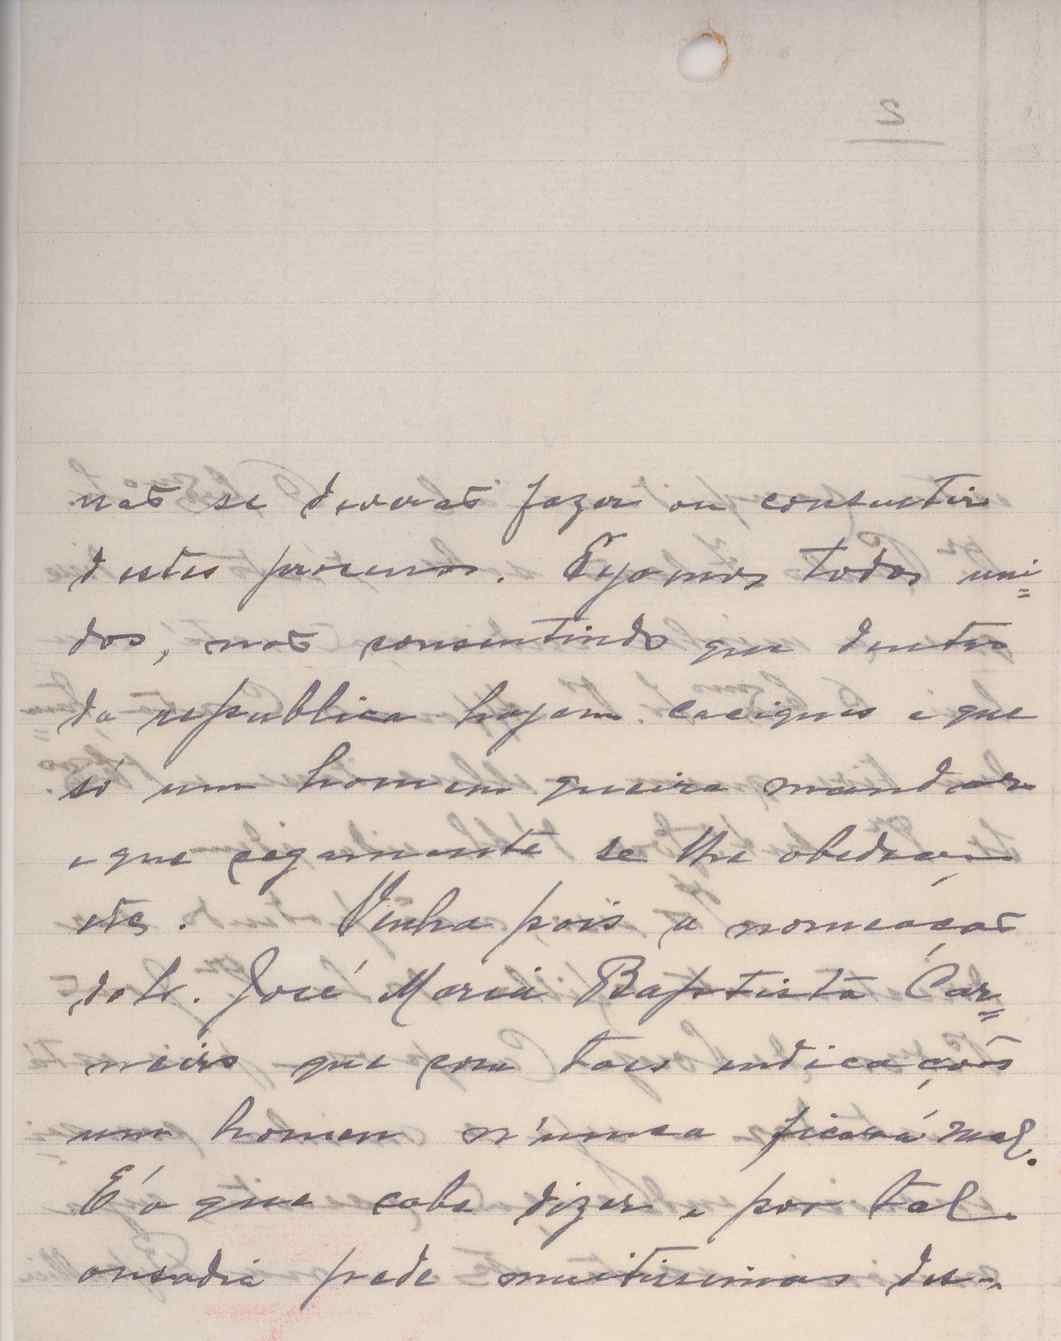 não se deverão fazer ou consentir
destes processos. Sejamos todos uni=
dos, não consentindo que dentro
da republica hajam caciques e que
só um homem queira mandar
e que cegamente se lhe obedeça
etc. Venha pois a nomeação
do Sr. José Maria Baptista Car=
neiro que com taes indicações
um homem n'unca ficará mal.
E' o que cabe dizer e por tal
ousadia pede muitissimas des-